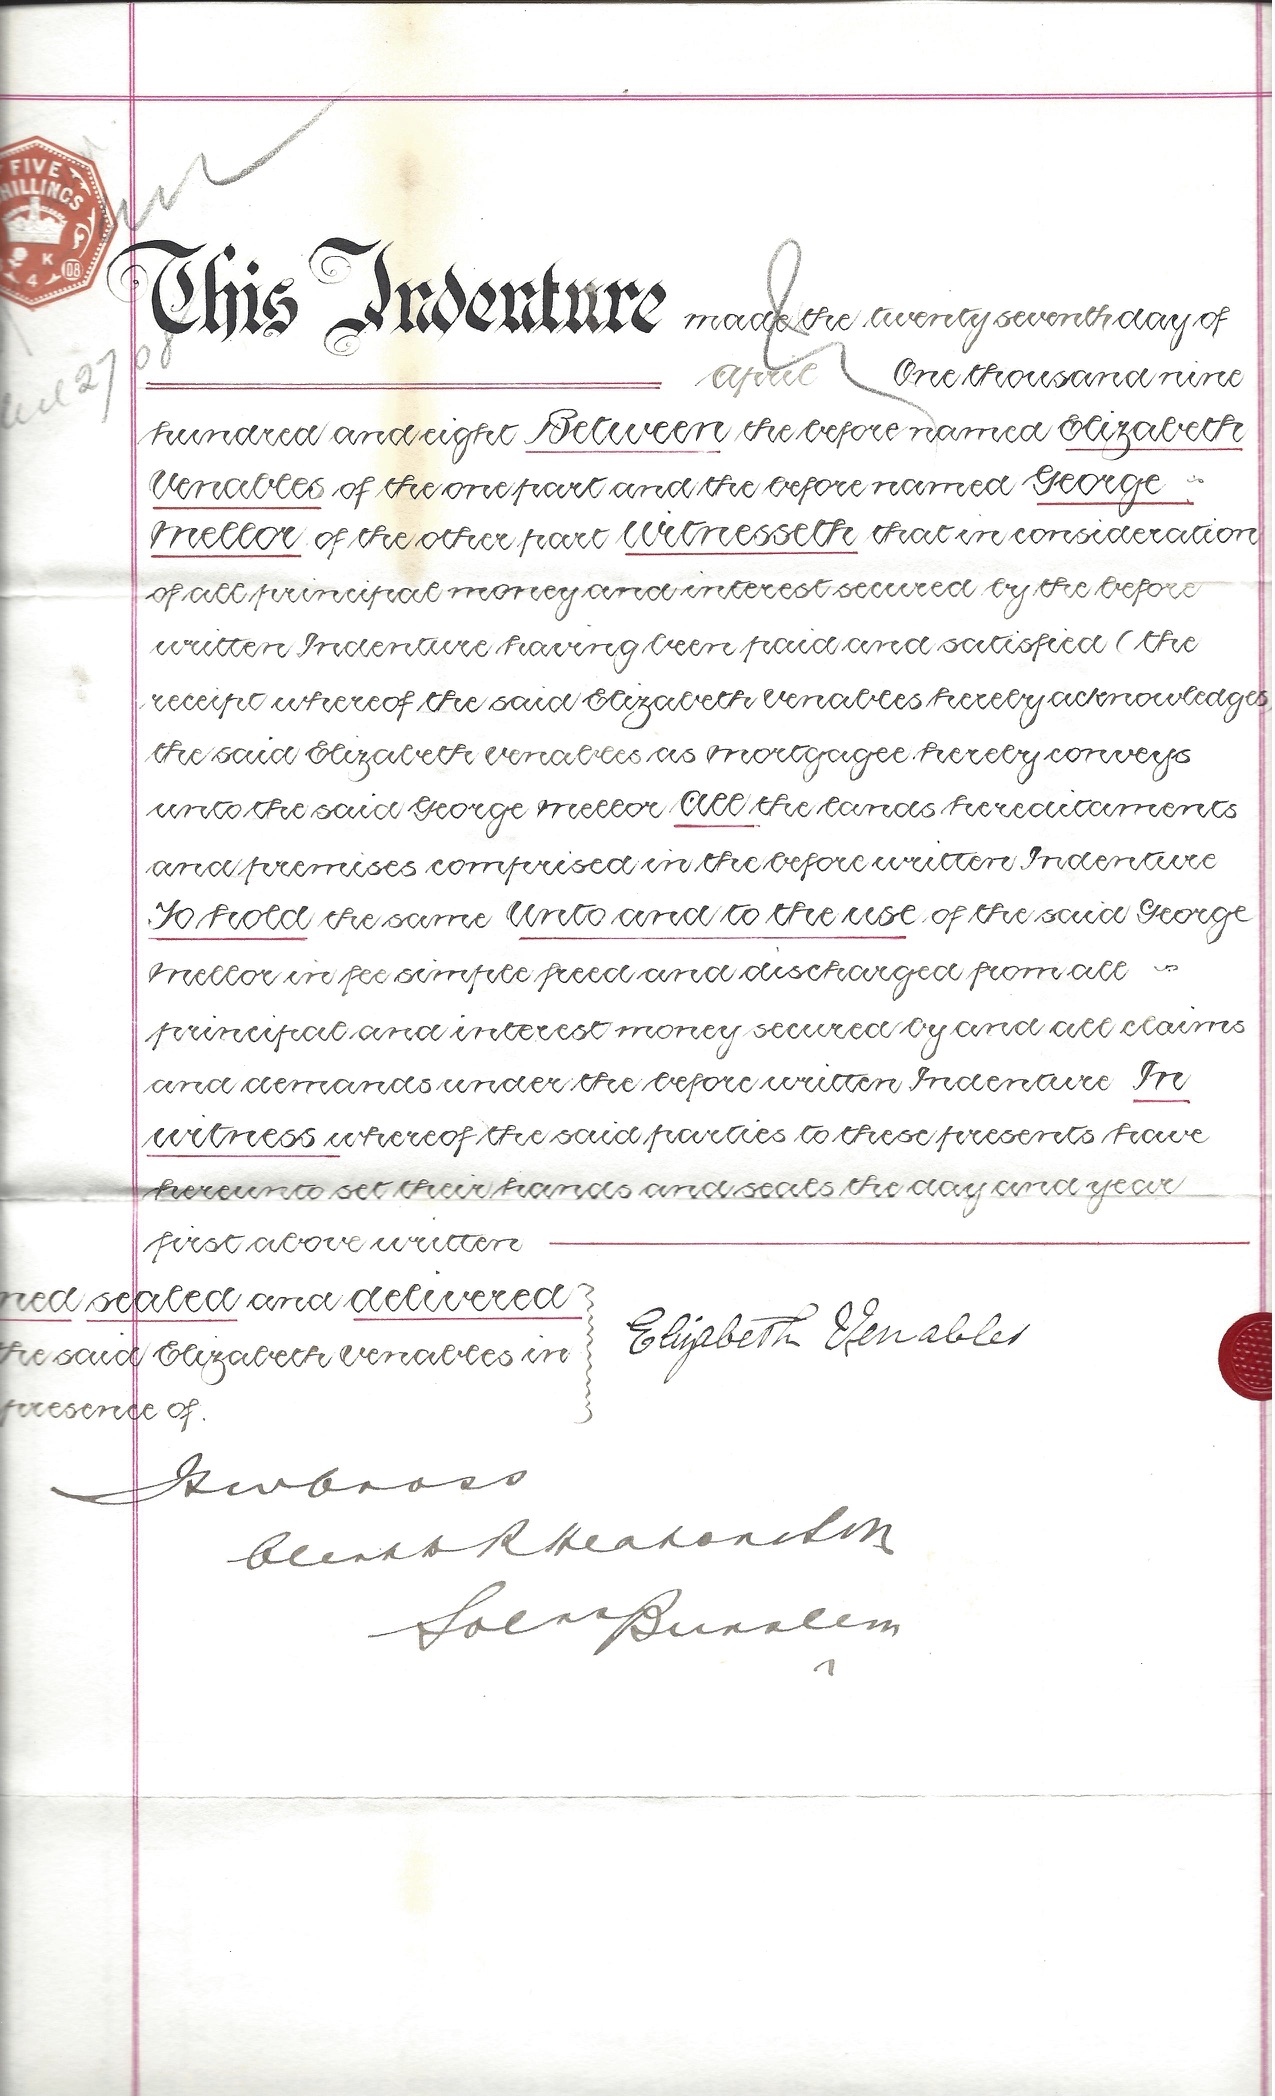 FIVE
HILLINGS
K
4
08
27/08
This Indenture made the twenty seventh day of
April One thousand nine
hundred and eight Between the before named Elizabeth
Venables of the one part and the before named George
Mellor of the other part Witnesseth that in consideration
of all principal money and interest secured by the before
written Indenture having been paid and satisfied ( the
receipt whereof the said Elizabeth Venables hereby acknowledges
the said Elizabeth Venables as Mortgagee hereby conveys
unto the said George Mellor All the lands hereditaments
and premises comprised in the before written Indenture
To hold the same Unto and to the use of the said George
Mellor in fee simple freed and discharged from all
principal and interest money secured by and all claims
and demands under the before written Indenture In
witness whereof the said parties to these presents have
hereunto set their hands and seals the day and year
first above written
ned sealed and delivered
the said Elizabeth Venables in
presence of.
Elizabeth Venables
Burslem